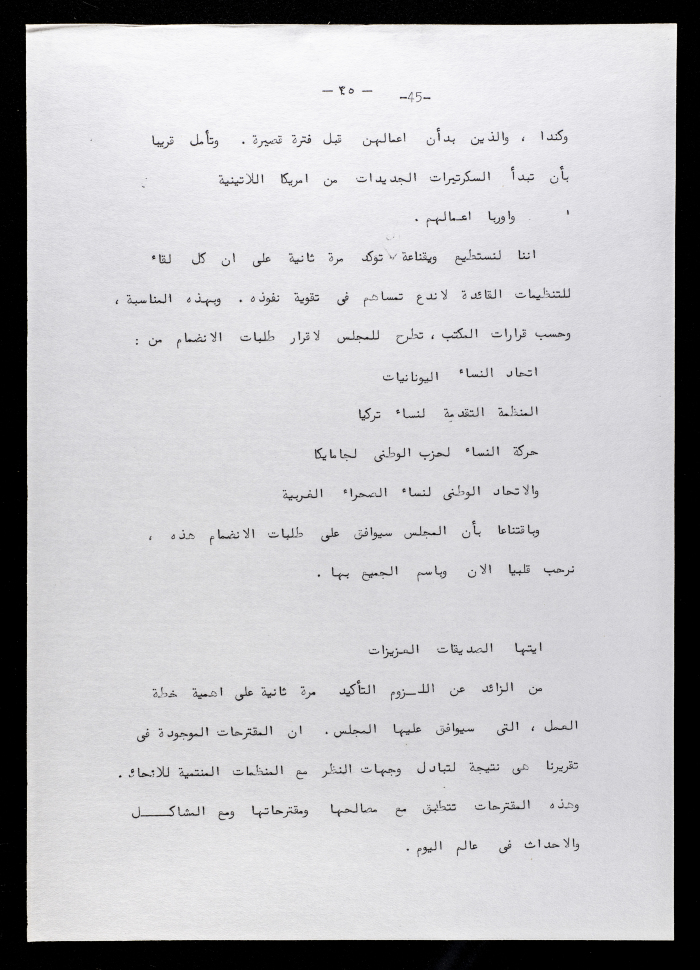 — ٤٥ — -45-
وكندا ، والذين بدأن اعمالهن قبل فترة قصيرة . ونأمل قريبا
بأن تبدأ السكرتيرات الجديدات من امريكا اللاتينية
واوربا اعمالهم .
اننا لنستطيع وبقناعة نوكد مرة ثانية على ان كل لقاء
للتنظيمات القائدة لاندع تساهم فى تقوية نفوذه . وبهذه المناسبة ،
وحسب قرارات المكتب ، تطرح للمجلس لاقرار طلبات الانضمام من :
اتحاد النساء اليونانيات
المنظمة التقدمية لنساء تركيا
حركة النساء لحزب الوطنى لجامايكا
والاتحاد الوطنى لنساء الصحراء الغربية
وباقتناعا بأن المجلس سيوافق على طلبات الانضمام هذه ،
نرحب قلبيا الان وباسم الجميع بها .
ايتها الصديقات العزيزات
من الزائد عن اللـزوم التأكيد مرة ثانية على اهمية خطة
العمل ، التى سيوافق عليها المجلس . ان المقترحات الموجودة فى
تقريرنا هى نتيجة لتبادل وجهات النظر مع المنظمات المنتمية للاتحاد .
وهذه المقترحات تتطابق مع مصالحها ومقترحاتها ومع المشاكـــل
والاحداث فى عالم اليوم .